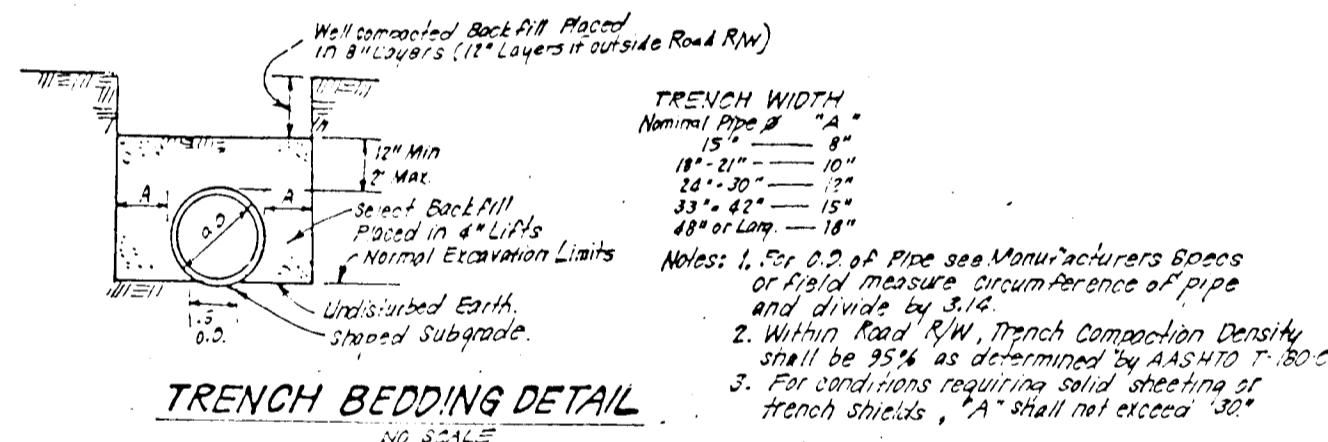 Well compacted Backfill Placed
in 8" Layers (12" Layers if outside Road R/W)
12" Min
2' Max.
A
A
O.D.
Select Backfill
Placed in 4" Lifts
Normal Excavation Limits
Undisturbed Earth.
Shaped Subgrade.
.5
O.D.
TRENCH BEDDING DETAIL
NO SCALE
TRENCH WIDTH
Nominal Pipe ø "A"
15" — 8"
18"-21" — 10"
24"-30" — 12"
33"-42" — 15"
48" or Larg. — 18"
Notes: 1. For O.D. of Pipe see Manufacturers Specs
or field measure circumference of pipe
and divide by 3.14.
2. Within Road R/W, Trench Compaction Density
shall be 95% as determined by AASHTO T-180-C
3. For conditions requiring solid sheeting or
trench shields, "A" shall not exceed 30"